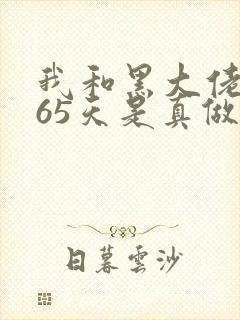 我和黑大佬
65天是真做
日暮雲沙